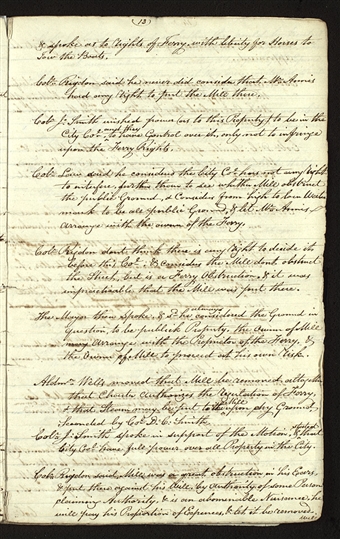 (13)
& spoke as to Rights of Ferry, with liberty for Horses to
Tow the Boats.
Colr. Rigdon said he never did consider that Mr. Annis
had any Right to put the Mill there.
Colr. J. Smith wished from as to this Property to be in the
City Col. and they to have Control over it, only not to infringe
upon the Ferry Rights.
Colr. Law said he considers the City Col. has not any Right
to interfere, further than to see whether Mill obstruct
the public Ground, & considers from high to low Water
mark to be all public Ground, & let Mr. Annis,
arrange with the owner of the Ferry.
Colr. Rigdon dont think there is any Right to decide it
before this Col. & considers the Mill dont obstruct
the Street, but is a Ferry Obstruction, & it was
impreachable that the Mill was put there.
The Mayor then spoke, & sd. he considered the Ground in
Question, to be publick Property, the Owner of Mill
may arrange with the Proprietor of the Ferry, &
the Owner of Mill to proceed at his own Risk.
Aldn. Wells moved that Mill be removed,
that Charter Authorizes the regulation of Ferry,
& that Steam Mill may be put upon dry Ground,
Seconded by Col. D. C. Smith.
Colr. J. Smith spoke in support of the Motion, & stated that
City Col. have full power over all Property in the City.
Colr. Rigdon said, Mill was a great obstruction in his Eyes,
& put there against his Will, by authority of some Person
claiming Authority, & is an abominable Nuisance, he
will pay his Proportion of Expences, & let it be removed.